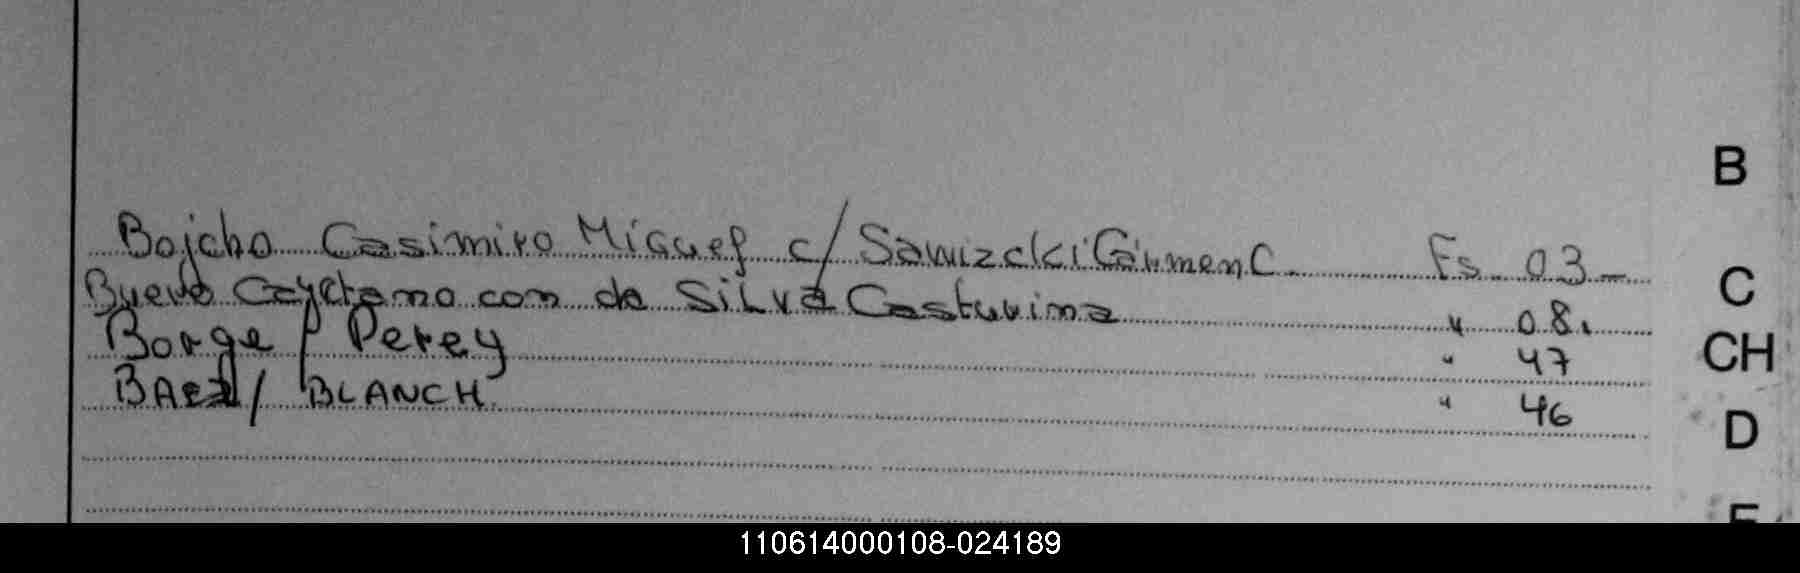 B
Bojcho Casimiro Miguel c/ Sawizcki Carmen C. Fs 03-
C
Bueno Cayetano con da Silva Casturina " 08.
Borge / Perey " 47
CH
BAez / BLANCH " 46
D
E
110614000108-024189